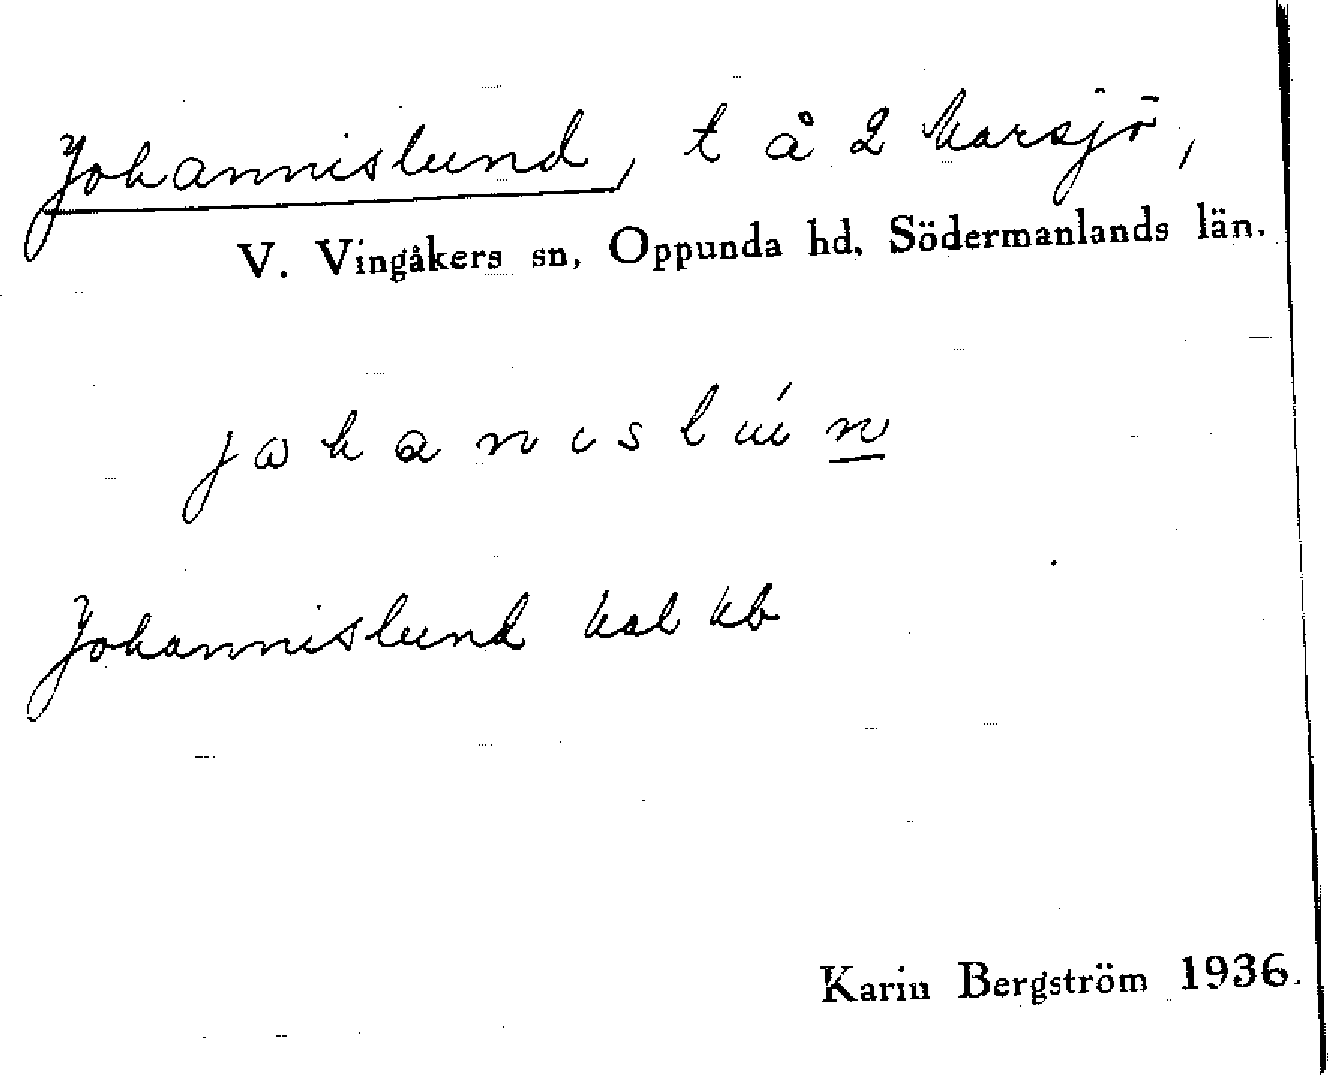 Johannislund, t å 2 Marsjö,
V. Vingåkers sn, Oppunda hd, Södermanlands län.
Johannislund
Karin Bergström 1936.